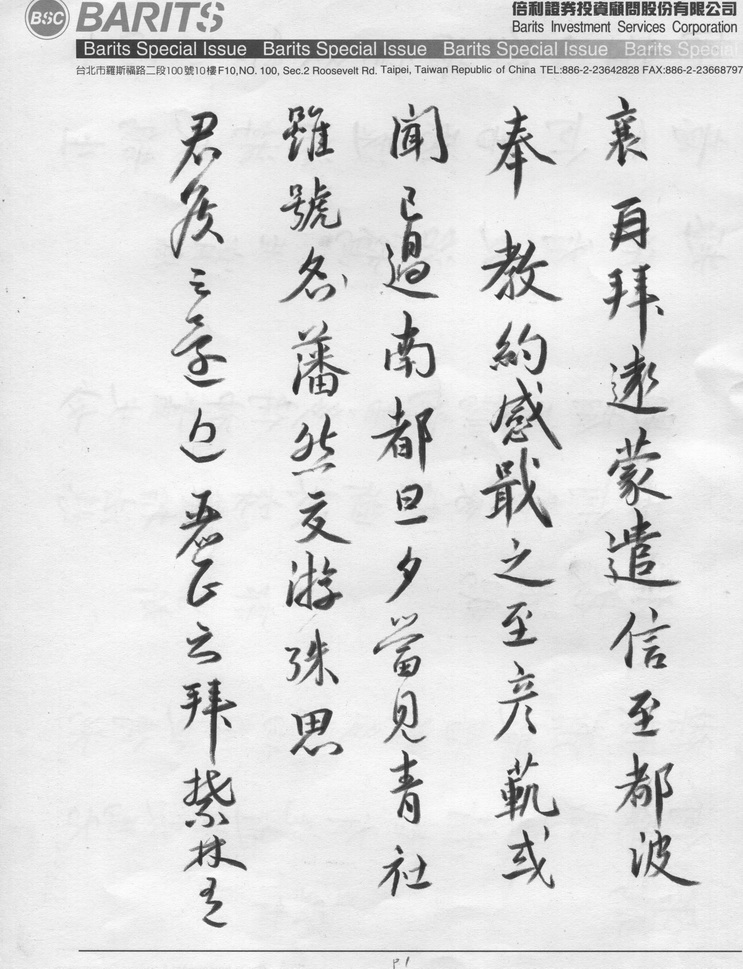 BSC BARITS
倍利證券投資顧問股份有限公司
Barits Investment Services Corporation
Barits Special Issue Barits Special Issue Barits Special Issue Barits Special
台北市羅斯福路二段100號10樓F10,NO. 100, Sec.2 Roosevelt Rd. Taipei, Taiwan Republic of China TEL:886-2-23642828 FAX:886-2-23668797
襄再拜遠蒙遣信至都波
奉教約感戢之至彥範或
聞已過南都旦夕當見青社
雖號名藩然交游殊思
君侯之還近麗正之拜禁林有
P1